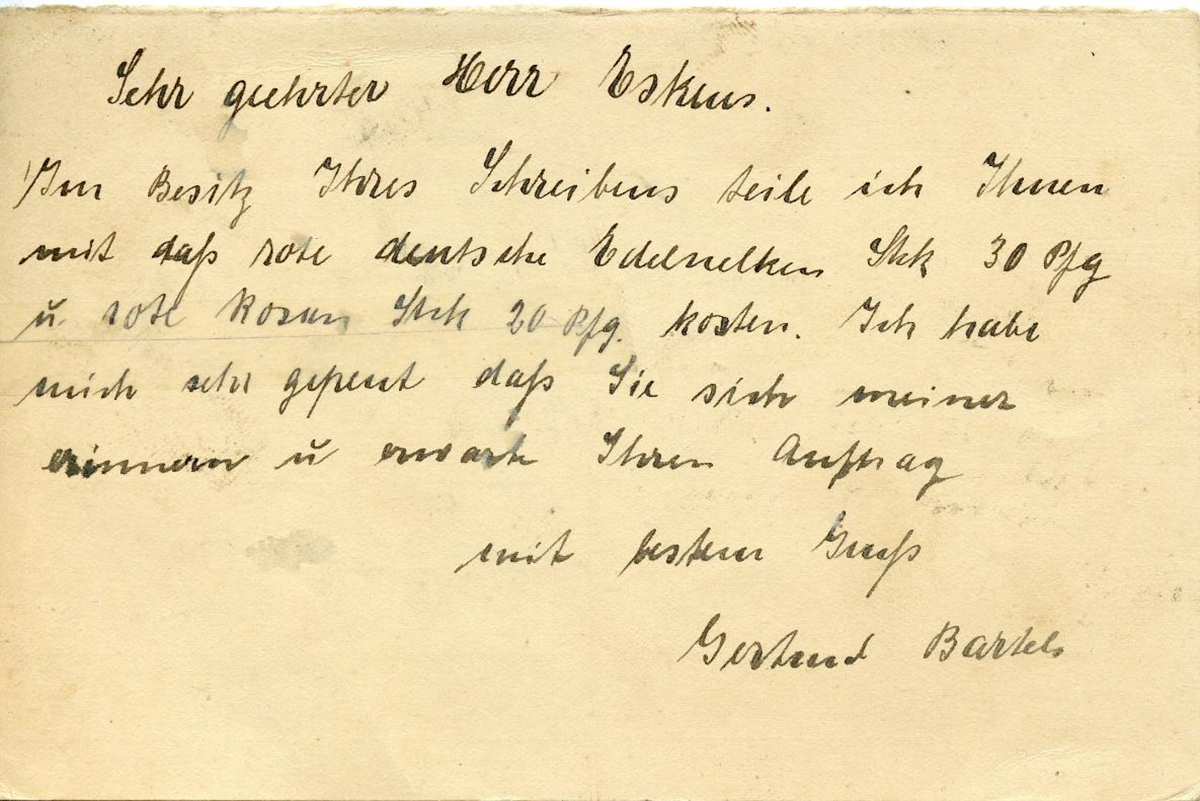 Sehr geehrter Herr Eskens.
Im Besitz Ihres Schreibens teile ich Ihnen
mit daß rote deutsche Edelnelken Stck 30 Pfg
u. rote Rosen Stck 20 Pfg. kosten. Ich habe
mich sehr gefreut daß Sie sich meiner
erinnern u erwarte Ihren Auftrag
mit bestem Gruß
Gertrud Bartels